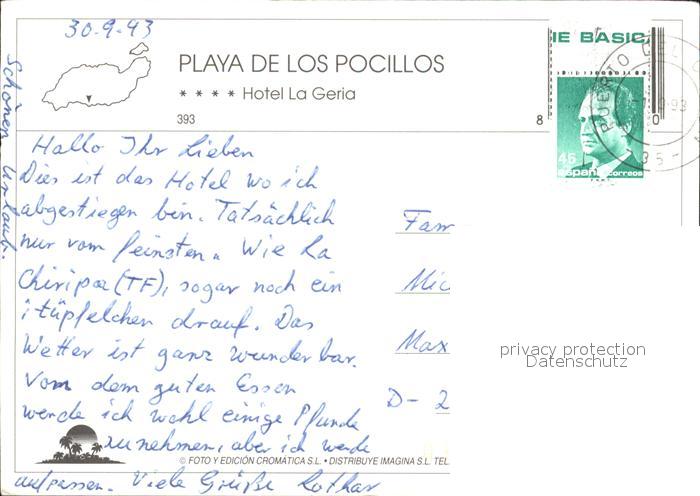 30-9-93
IE BASIC
PLAYA DE LOS POCILLOS
**** Hotel La Geria
393
8
0
45
España correos
PUERTO DEL
35
Hallo Ihr Lieben
Dies ist das Hotel wo ich
abgestiegen bin. Tatsächlich
nur vom feinsten. Wie La
Chiripa (TF), sogar noch ein
itüpfelchen drauf. Das
Wetter ist ganz wunderbar.
Vom dem guten Essen
werde ich wohl einige Pfunde
zunehmen, aber ich werde
aufpassen. Viele Grüße Lothar
Schönen Urlaub.
Fam
Mic
Max
D-2
privacy protection
Datenschutz
© FOTO Y EDICIÓN CROMATICA S.L. • DISTRIBUYE IMAGINA S.L. TEL